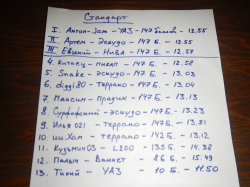 Стандарт
I. Антон-Jam - УАЗ - 147 баллов - 12.55
II. Артем - Эскудо - 147 Б. - 12.55
III Евгений - Нива - 147 Б. - 12.57
4. Китаец - пикап - 147 Б. - 12.58
5. Snake - эскудо - 147 Б. - 13.03
6. diggi80 - террано - 147 Б. - 13.04
7. Максим - прадик - 147 Б. - 13.13
8. - эскудо - 147 Б. - 13.23
9. Илья 021 - террано - 147 Б. - 13.31
10. ши.Хан - террано - 142 Б. - 13.12
11. Кузьмич03 - L200 - 139 Б. - 14.38
12. Палыч - - 86 Б - 15.49
13. Тихий - УАЗ - 10 Б. - 11.50